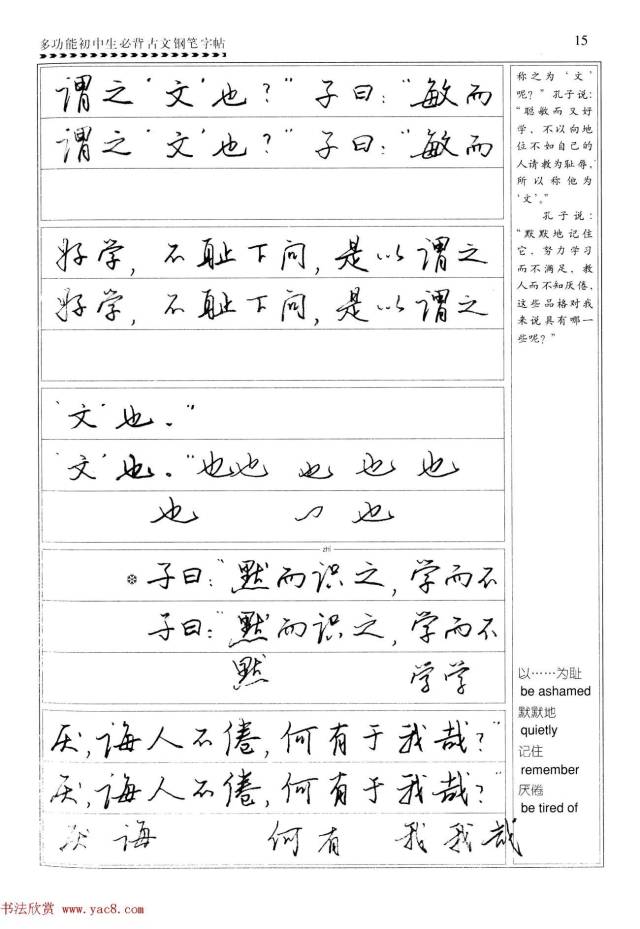 多功能初中生必背古文钢笔字帖
15
谓之‘文’也？”子曰：“敏而
谓之‘文’也？”子曰：“敏而
好学，不耻下问，是以谓之
好学，不耻下问，是以谓之
‘文’也。”
‘文’也。”也也 也 也 也
也 也
zhì
※子曰：“默而识之，学而不
子曰：“默而识之，学而不
默 学学
厌，诲人不倦，何有于我哉？”
厌，诲人不倦，何有于我哉？”
厌 诲 何有 我我哉
称之为‘文’
呢？”孔子说：
“聪敏而又好
学，不以向地
位不如自己的
人请教为耻辱，
所以称他为
‘文’。”
孔子说：
“默默地记住
它，努力学习
而不满足，教
人而不知厌倦，
这些品格对我
来说具有哪一
些呢？”
以……为耻
be ashamed
默默地
quietly
记住
remember
厌倦
be tired of
书法欣赏 www.yac8.com